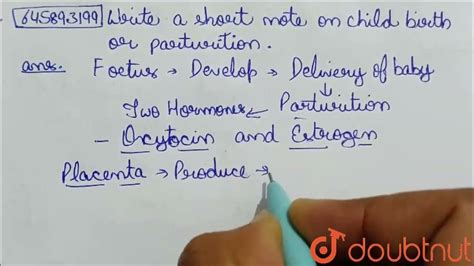 645893199 Write a short note on child birth
or parturition.
ans. Foetus → Develop → Delivery of baby
Two Hormones ← Parturition
- Oxytocin and Estrogen
Placenta → Produce →
doubtnut